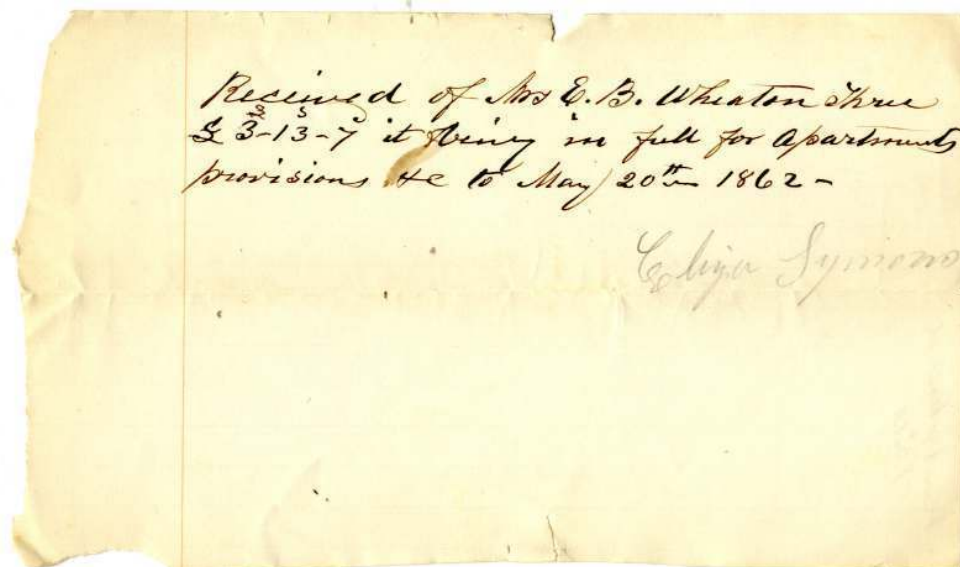 Received of Mrs E. B. Wheaton Three
£ 3-13-7 it being in full for Apartments
provisions &c to May 20th 1862 -
Eliza Symons